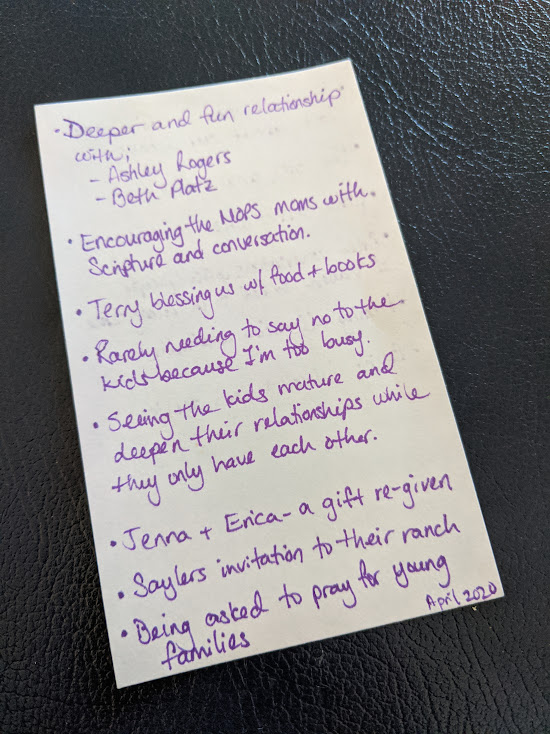 • Deeper and fun relationship
with;
- Ashley Rogers
- Beth Platz
• Encouraging the MOPS moms with
Scripture and conversation.
• Terry blessing us w/ food + books
• Rarely needing to say no to the
kids because I'm too busy.
• Seeing the kids mature and
deepen their relationships while
they only have each other.
• Jenna + Erica - a gift re-given
• Saylers invitation to their ranch
• Being asked to pray for young
families
April 2020